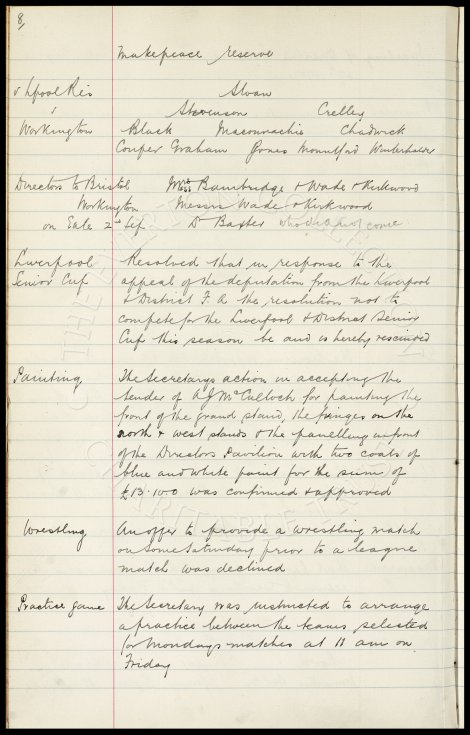 8,
Makepeace reserve
v Lpool Res Sloan
v Stevenson Crelley
Workington Black Maconnachie Chadwick
Couper Graham Jones Mountford Winterhalder
Directors to Bristol Messrs Bainbridge & Wade & Kirkwood
Workington Messrs Wade & Kirkwood
on Gate 2nd Sep Dr Baxter who did not come
Liverpool Resolved that in response to the
Senior Cup appeal of the deputation from the Liverpool
& District F. A the resolution not to
compete for the Liverpool & District Senior
Cup this season be and is hereby rescinded
Painting The Secretarys action in accepting the
tender of A J McCulloch for painting the
front of the grand stand, the fringes on the
north & west stands & the panelling in front
of the Directors Pavilion with two coats of
blue and white paint for the sum of
£13.10.0 was confirmed & approved
Wrestling An offer to provide a wrestling match
on some Saturday prior to a league
match was declined
Practice game The Secretary was instructed to arrange
a practice between the teams selected
for Mondays matches at 11 am on
Friday